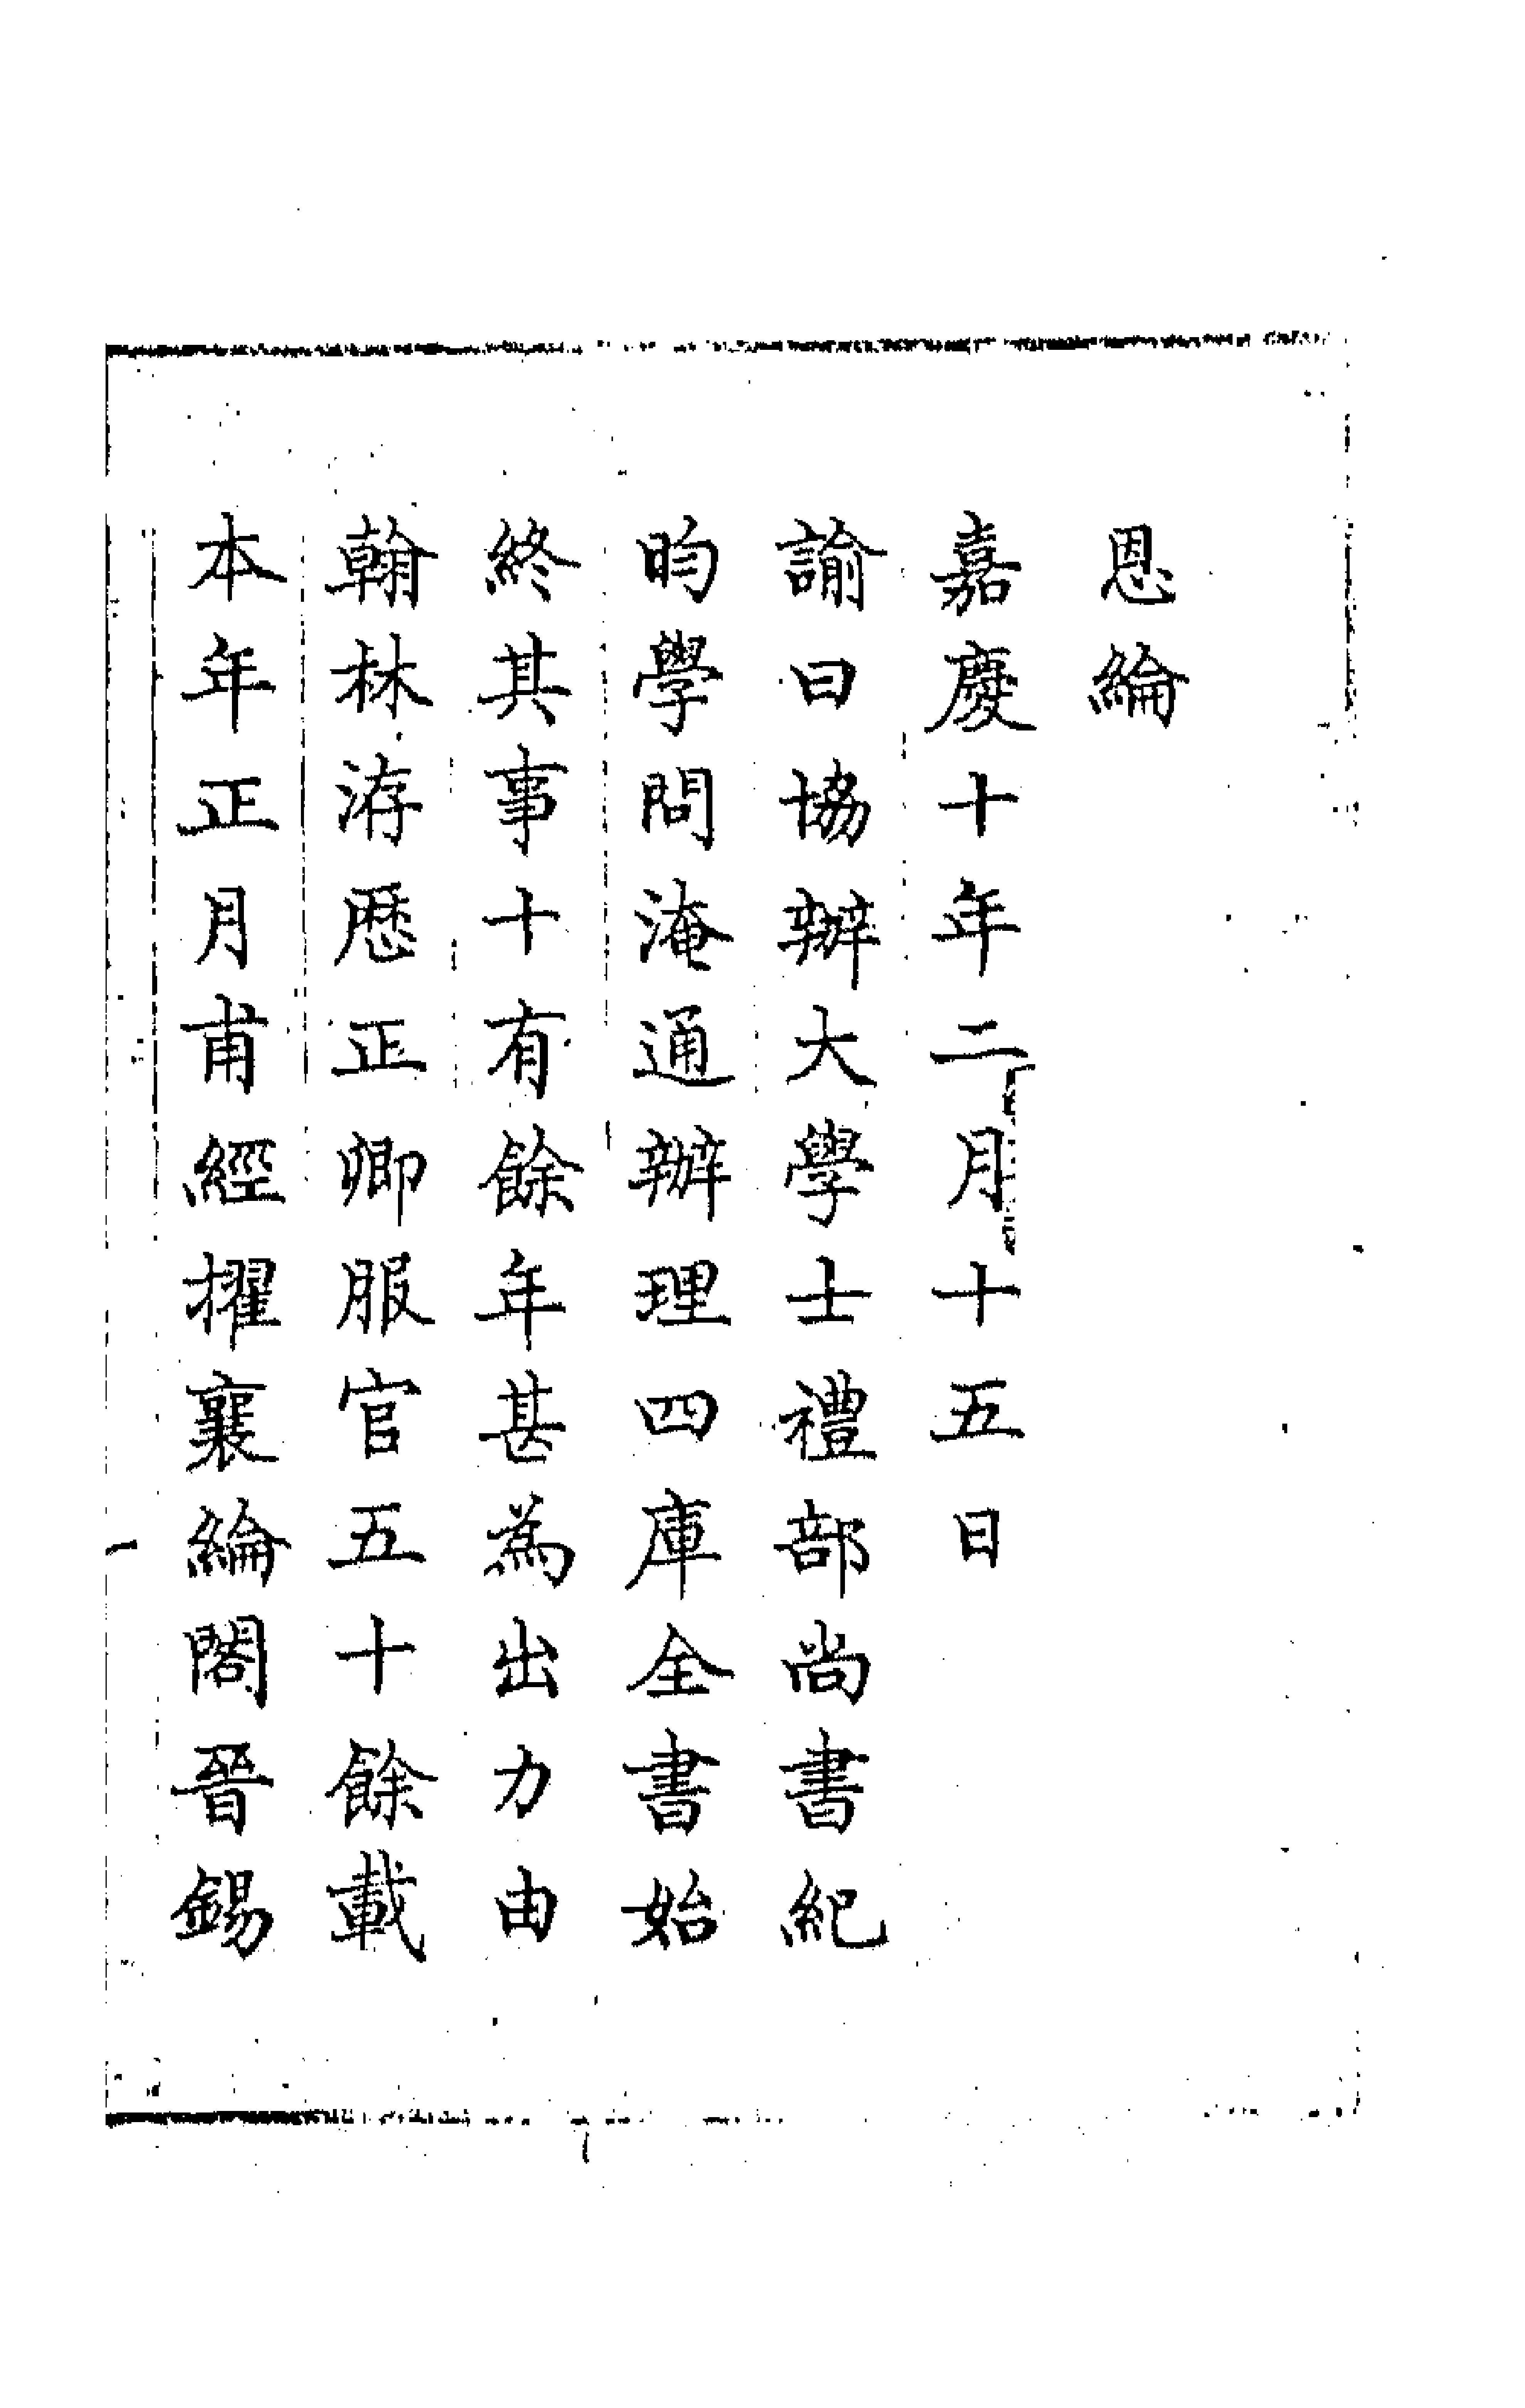 恩綸
嘉慶十年二月十五日
諭曰協辦大學士禮部尚書紀
昀學問淹通辦理四庫全書始
終其事十有餘年甚為出力由
翰林洊歷正卿服官五十餘載
本年正月甫經擢襄綸閣晉錫
一